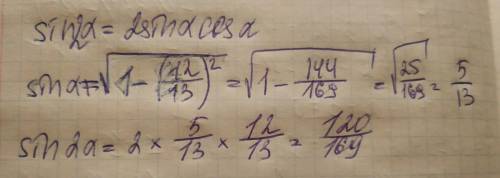 sin2α = 2sinα cosα
sinα = √(1 - (12/13)²) = √(1 - 144/169) = √(25/169) = 5/13
sin2α = 2 × 5/13 × 12/13 = 120/169